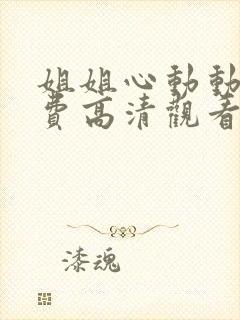 姐姐心動動
費高清觀看
漆魂